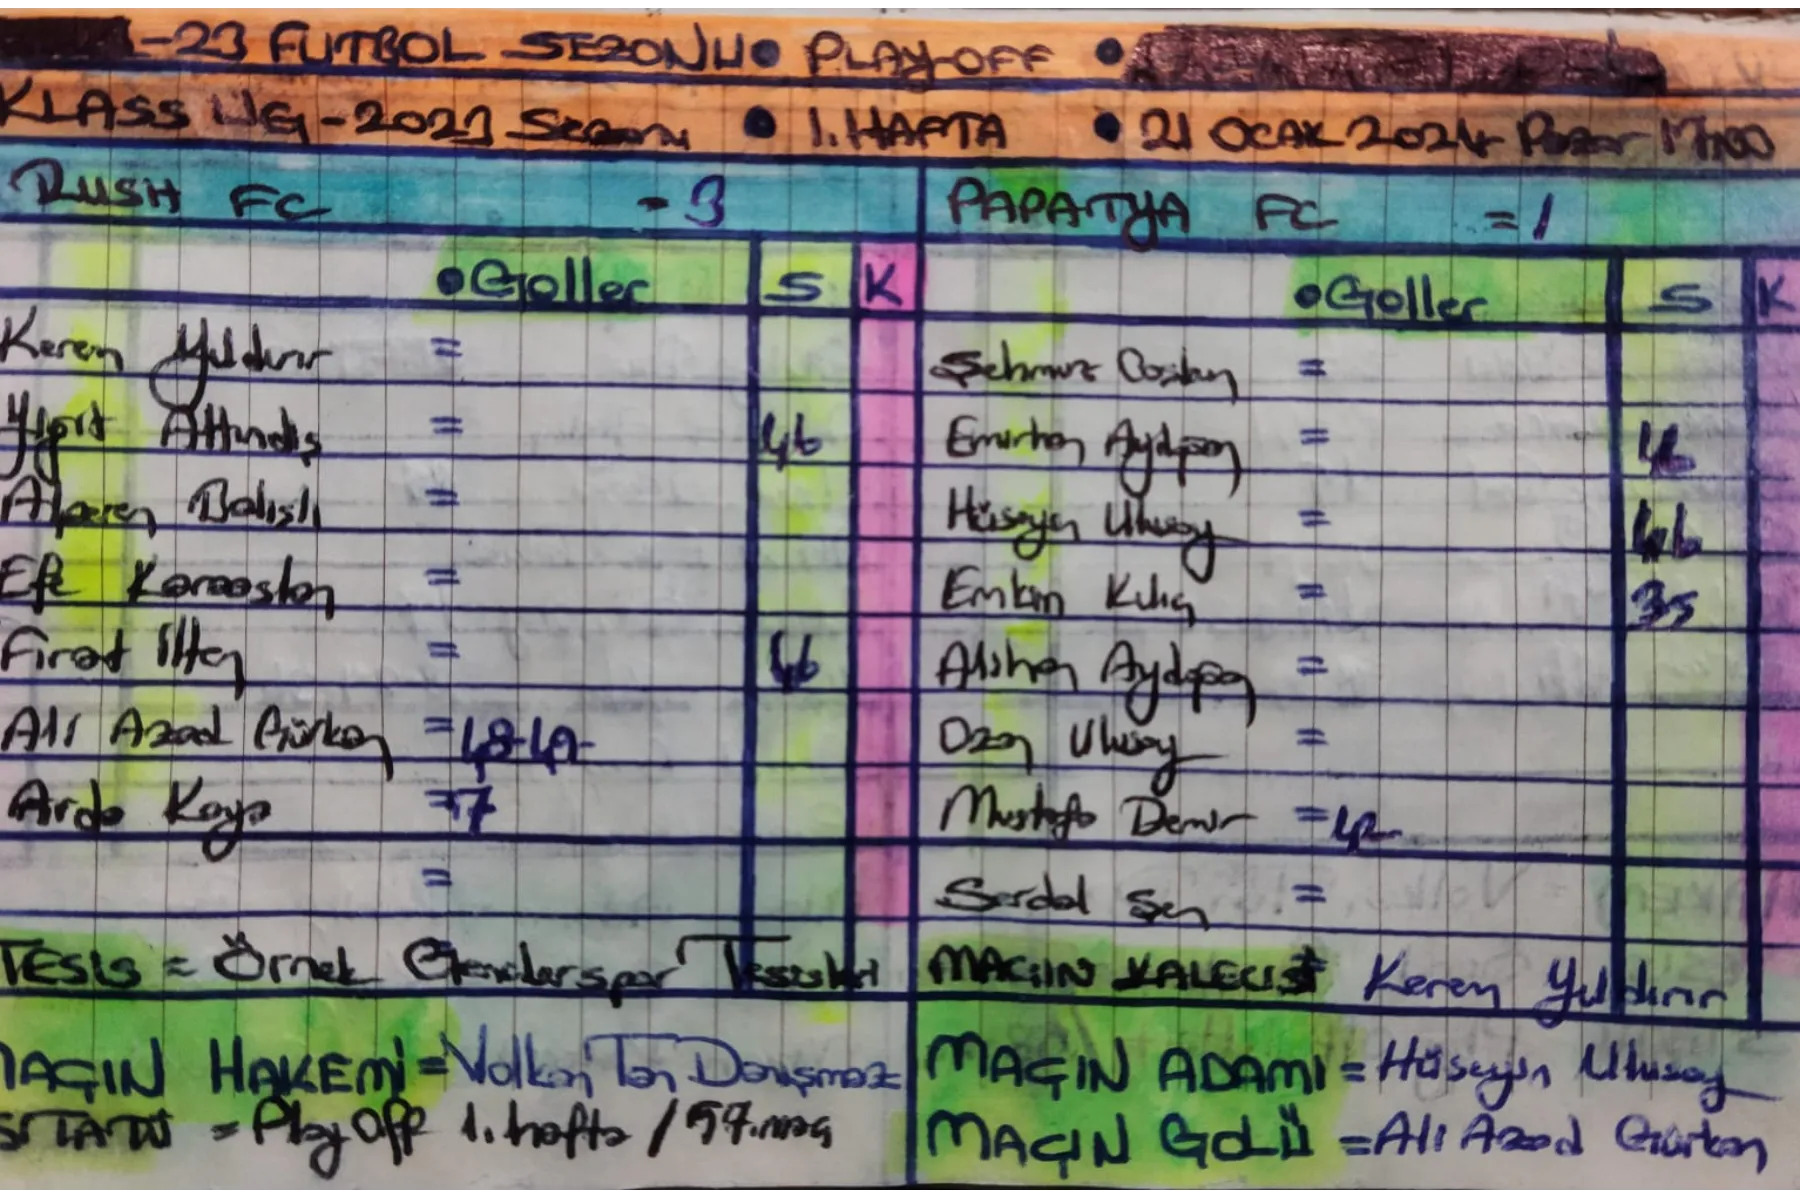 -23 FUTBOL SEZONU • PLAY-OFF •
KLASS LİG - 2023 Sezonu • 1. HAFTA • 21 OCAK 2024 Pazar 17:00
RUSH FC = 3
PAPATYA FC = 1
• Goller S K
• Goller S K
Kerem Yıldırır =
Şehmuz Coşkun =
Yiğit Altındiş = 46
Emirhan Aydoğan =
Alperen Balışlı =
Hüseyin Ulusoy = 46
Efe Karaaslan =
Emken Kılıç = 35
Fırat İlten = 46
Alishan Aydoğan =
Ali Azad Gürkan = 48-49-
Ozan Ulusoy =
Arda Kaya = 7
Mustafa Demir = 42-
=
Serdal Şen =
TESİS = Örnek Gençlerspor Tesisleri
MAÇIN KALECİSİ Kerem Yıldırır
MAÇIN HAKEMİ = Volkan Tan Danışmaz
MAÇIN ADAMI = Hüseyin Ulusoy
= Play Off 1. hafta / 57. maç
MAÇIN GOLÜ = Ali Azad Gürkan